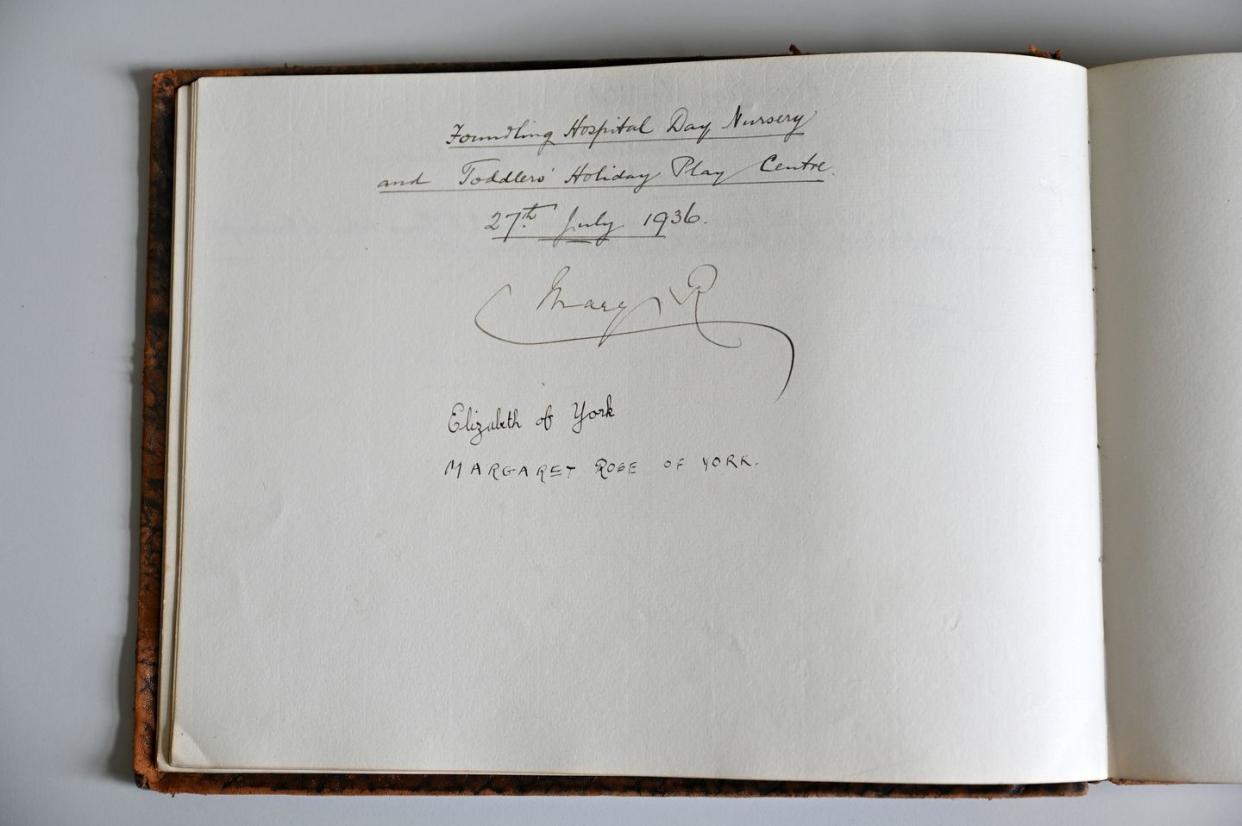 Foundling Hospital Day Nursery
and Toddlers' Holiday Play Centre.
27th July 1936.
Mary R
Elizabeth of York
MARGARET ROSE OF YORK.